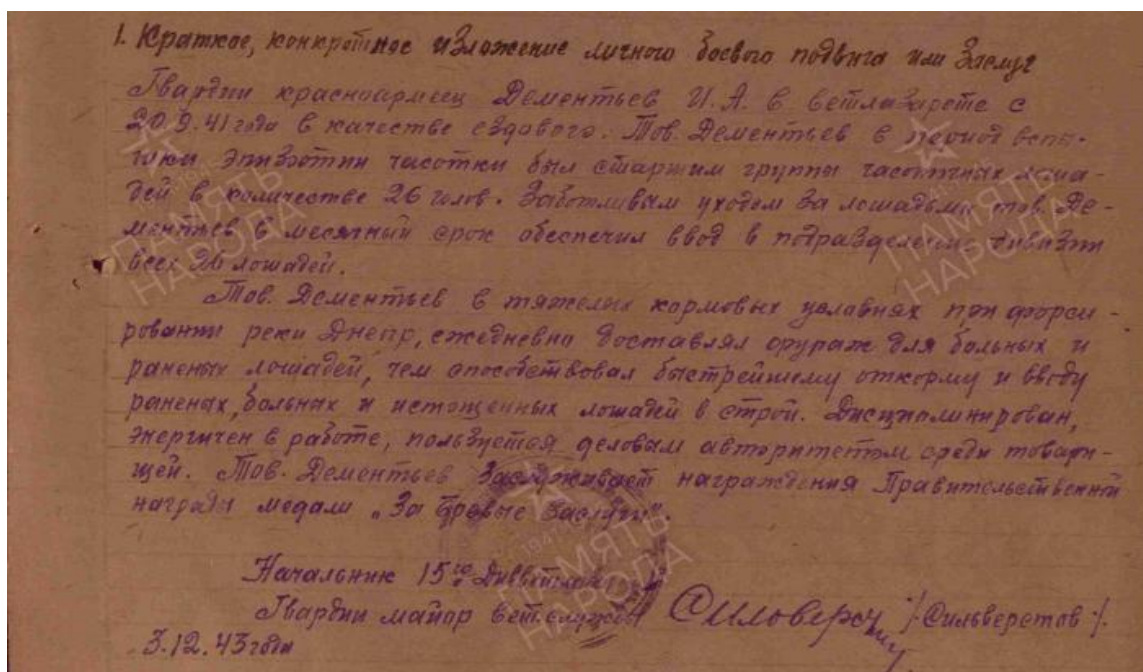 1. Краткое, конкретное изложение личного боевого подвига или заслуг
Гвардии красноармеец Дементьев И.А. в ветлазарете с
20.9.41 года в качестве ездового. Тов. Дементьев в период вспы-
шки эпизоотии чесотки был старшим группы чесоточных лоша-
дей в количестве 26 голов. Заботливым уходом за лошадьми тов. Де-
ментьев в месячный срок обеспечил ввод в подразделения дивизии
всех 26 лошадей.
Тов. Дементьев в тяжелых кормовых условиях при форси-
ровании реки Днепр, ежедневно доставлял фураж для больных и
раненых лошадей, чем способствовал быстрейшему откорму и вводу
раненых, больных и истощенных лошадей в строй. Дисциплинирован,
энергичен в работе, пользуется деловым авторитетом среди товари-
щей. Тов. Дементьев заслуживает награждения Правительственной
награды медали „За боевые заслуги".
Начальник 15го
Гвардии майор вет. службы /Сильверстов/.
3.12.43 года
ПАМЯТЬ
НАРОДА
ПАМЯТЬ
НАРОДА
ПАМЯТЬ
НАРОДА